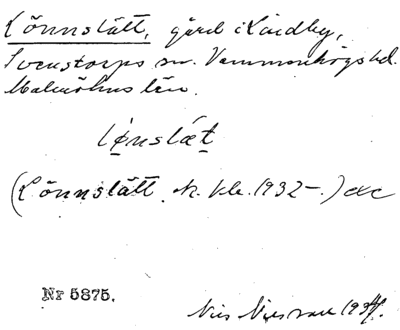 Lönnslätt, gård i Lindby,
Svenstorps sn. Vemmenhögs hd.
Malmöhus län.
lø̠nslæt̠
(Lönnslätt. 1932–.)
Nr 5875.
Nils 1934.